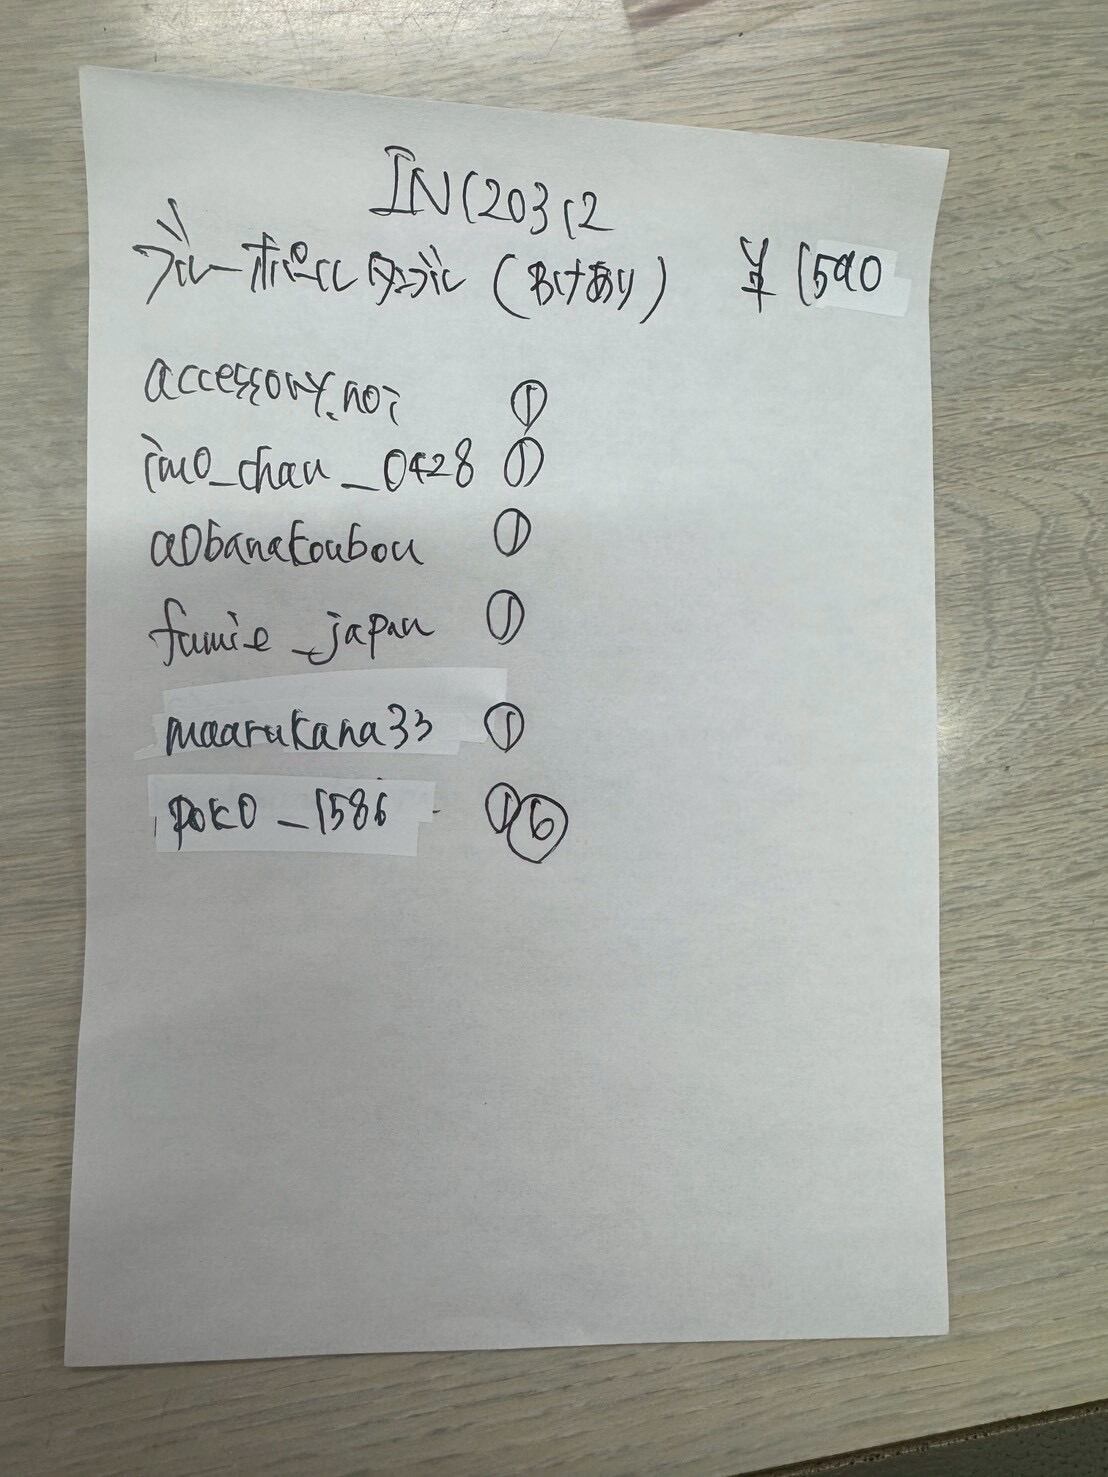 IN120312
ブルーオパールタンブル (わけあり) ¥1590
accessory.noi ①
imo_chan_0428 ①
aobanakoubou ①
fumie_japan ①
maarukana33 ①
poko_1586 ①⑥